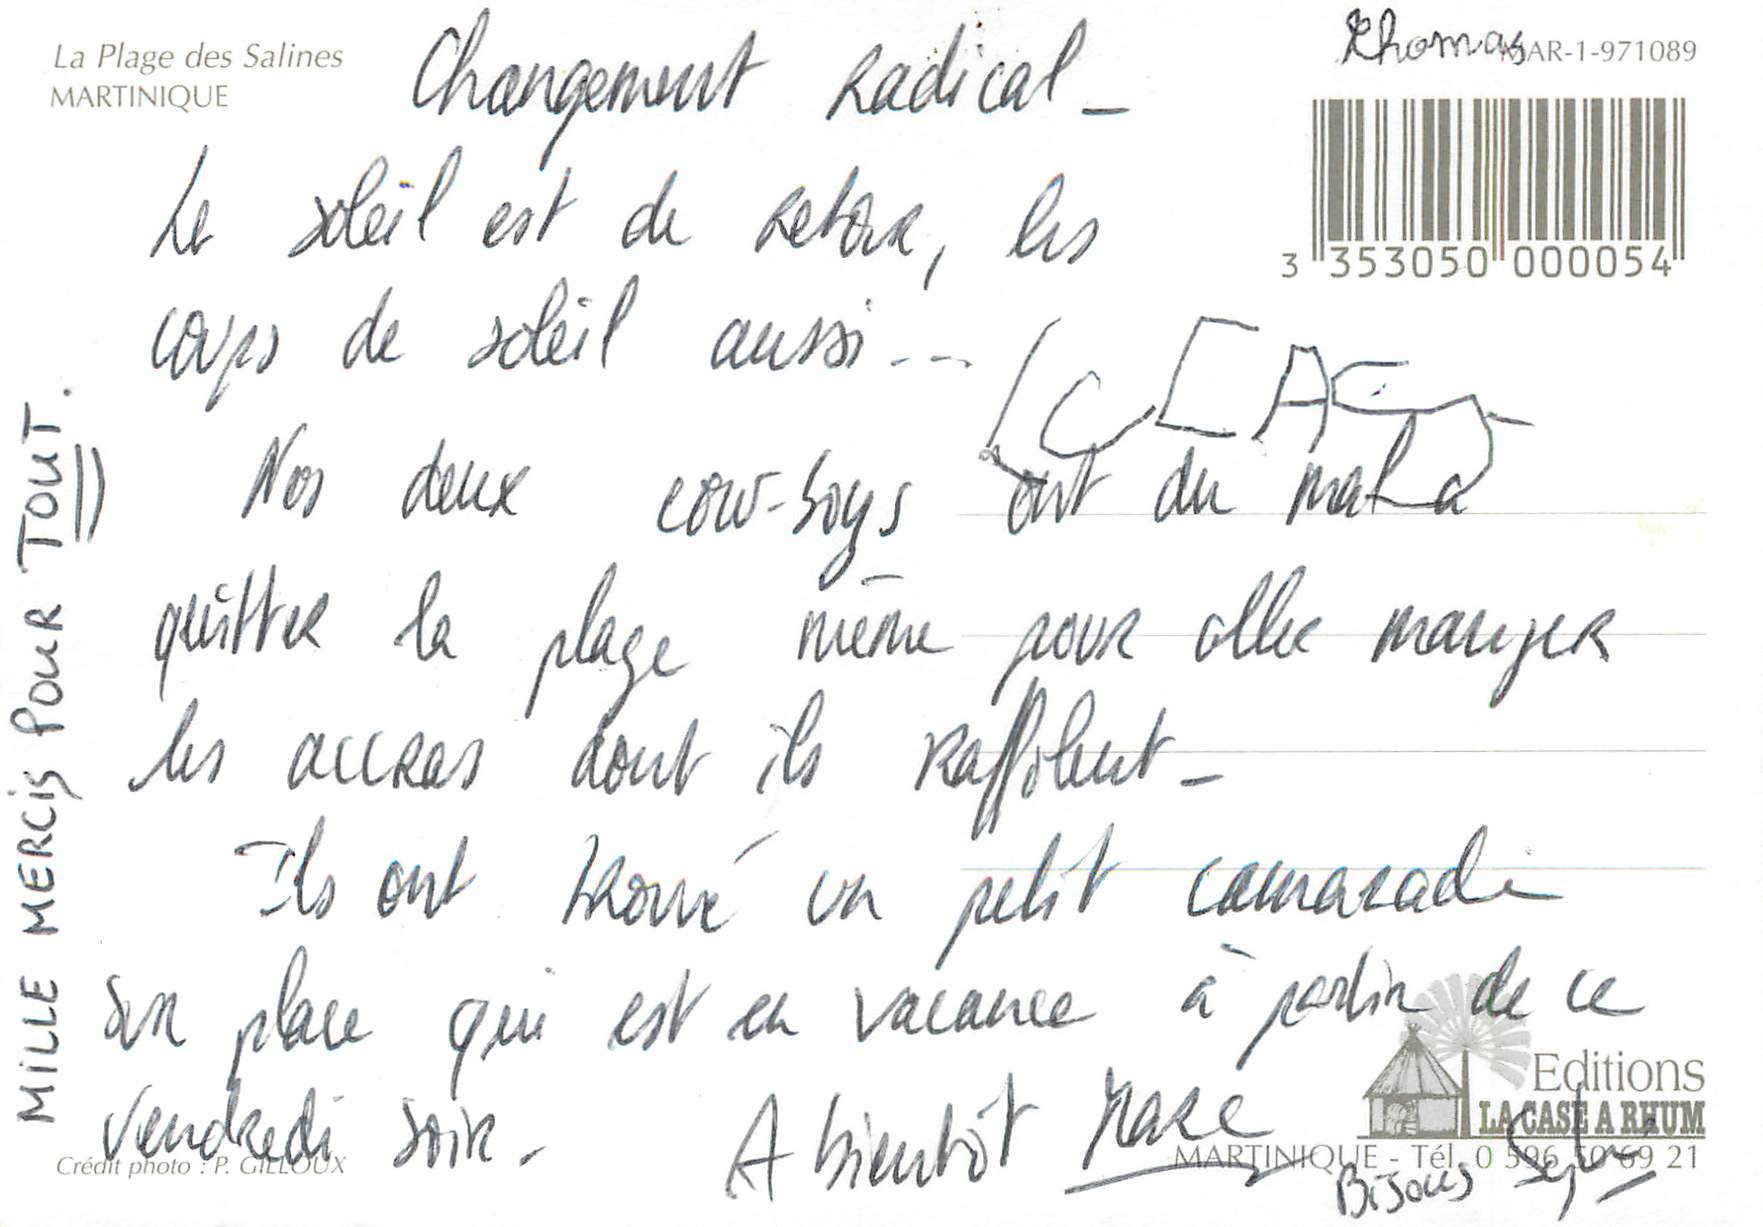 La Plage des Salines
MARTINIQUE
Thomas
MAR-1-971089
3 353050 000054
Changement radical -
Le soleil est de retour, les
coups de soleil aussi ---
Nos deux cow-boys ont du mal à
quitter la plage même pour aller manger
les accras dont ils raffolent -
Ils ont trouvé un petit camarade
sur place qui est en vacance à partir de ce
vendredi soir -
A bientôt Marc
Bisous Sylvie
MILLE MERCIS POUR TOUT.
Crédit photo : P. GILLOUX
Editions
LA CASE A RHUM
MARTINIQUE - Tél. 0 596 50 69 21